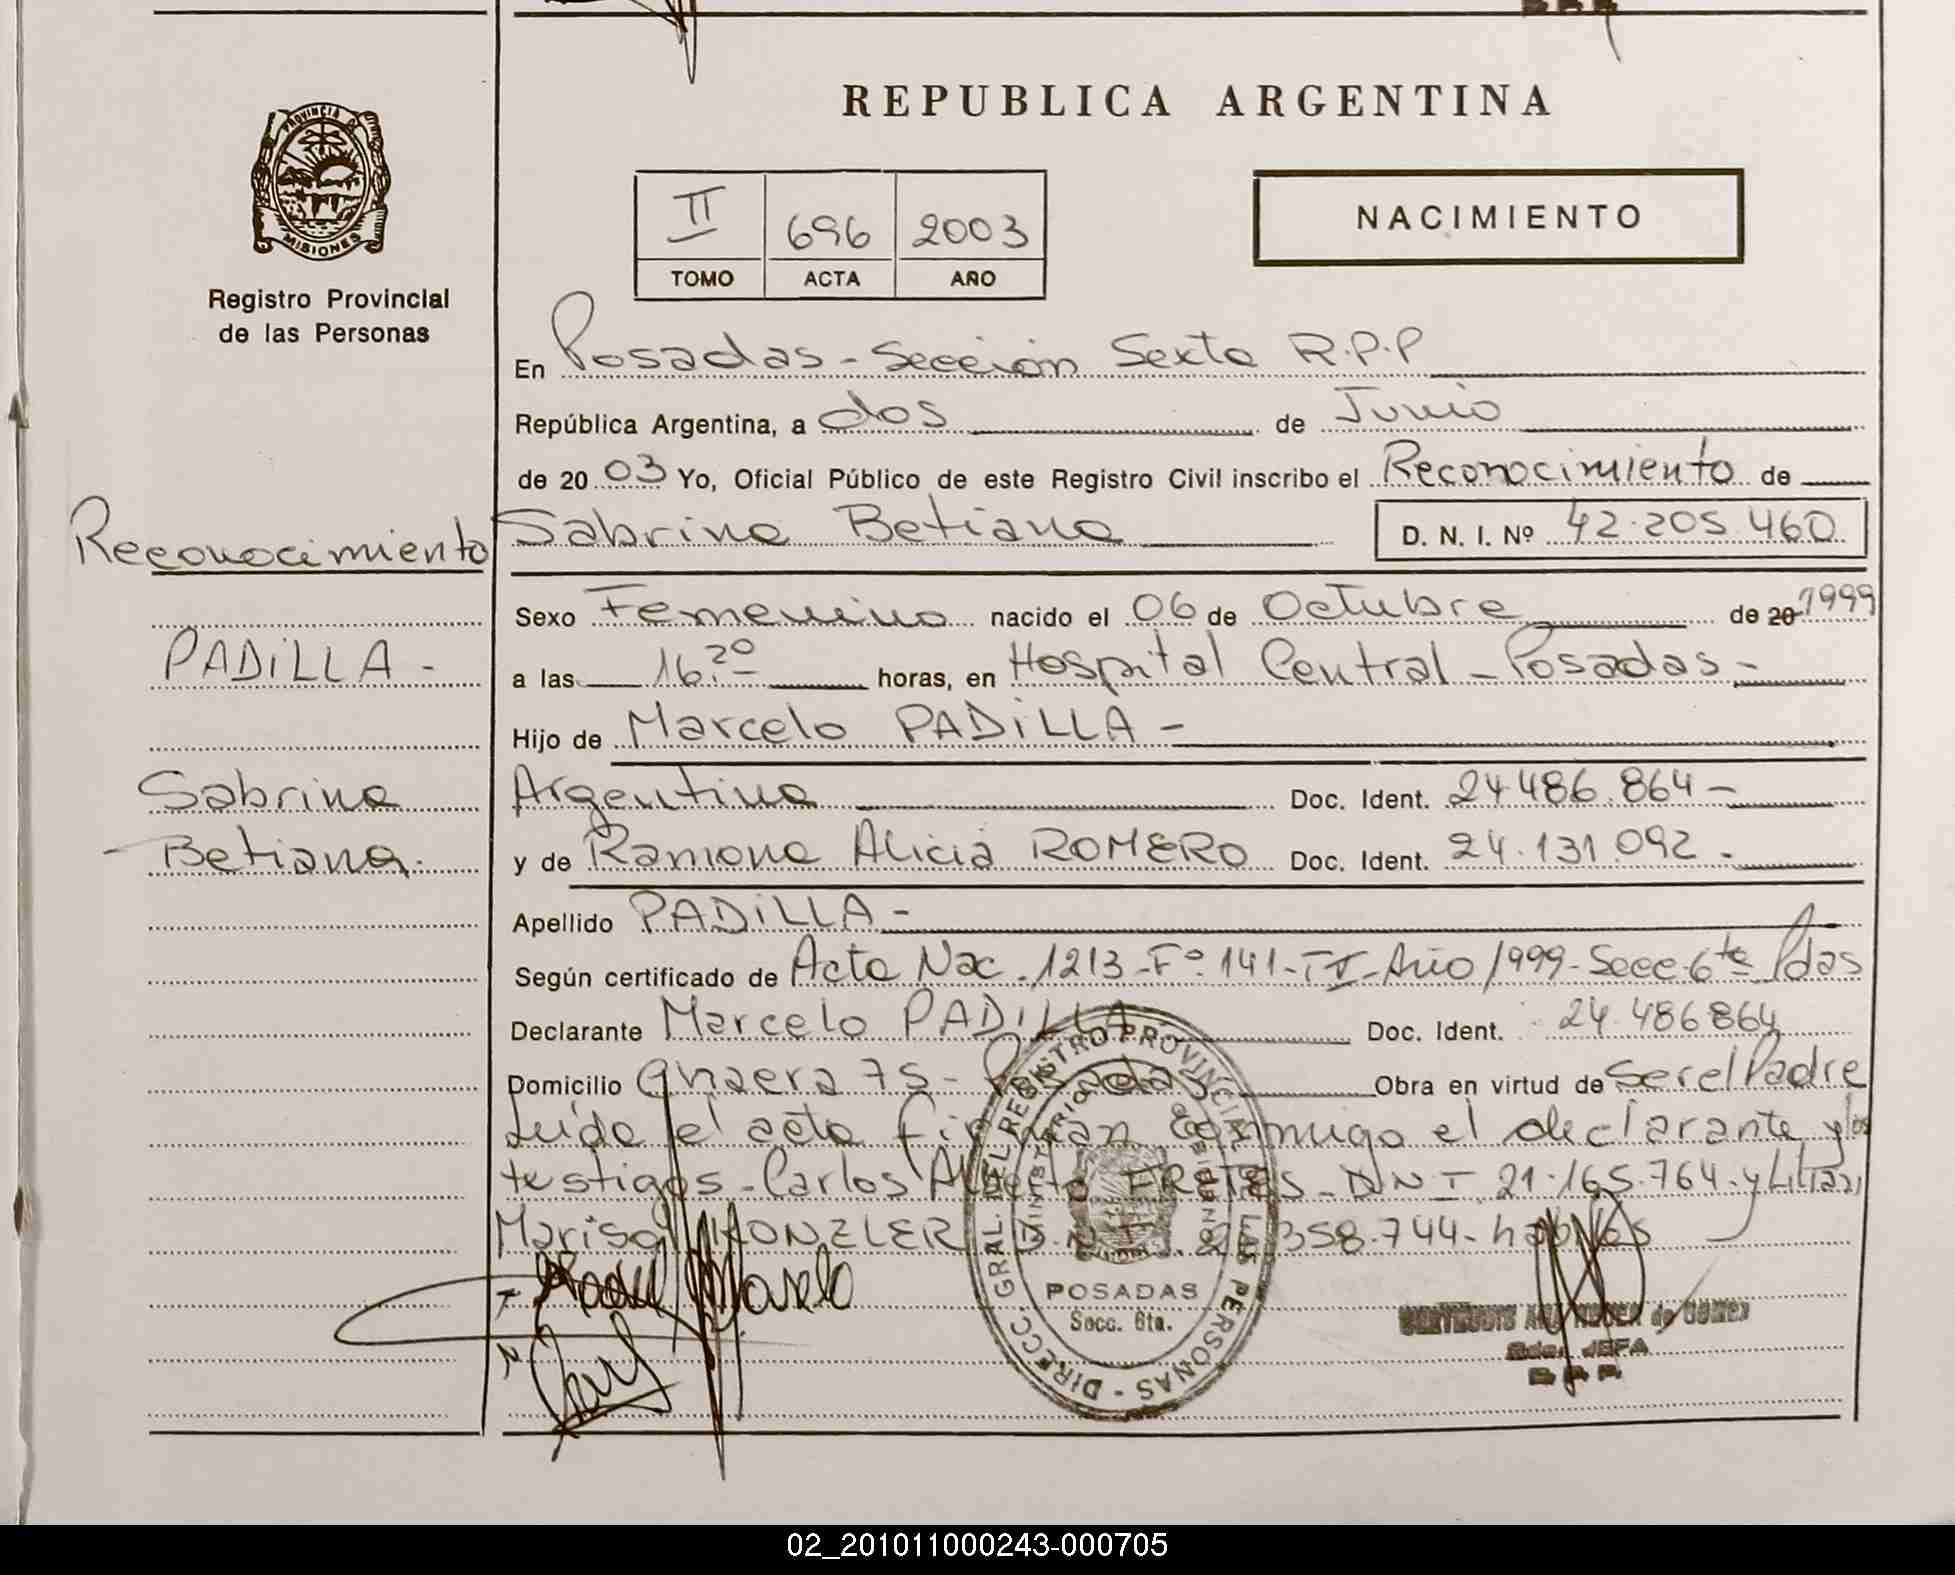 PROVINCIA D
MISIONES
Registro Provincial
de las Personas
Reconocimiento
PADiLLA -
Sabrina
- Betiana.
REPUBLICA ARGENTINA
II 696 2003
TOMO ACTA AÑO
NACIMIENTO
En Posadas - Sección Sexta R.P.P
República Argentina, a dos de Junio
de 20 03 Yo, Oficial Público de este Registro Civil inscribo el Reconocimiento de
Sabrina Betiana D. N. I. Nº 42.205.460
Sexo Femenino nacido el 06 de Octubre de 20 1999
a las 16.20 horas, en Hospital Central - Posadas -
Hijo de Marcelo PADiLLA -
Argentina Doc. Ident. 24.486.864 -
y de Ramona Alicia ROMERO Doc. Ident. 24.131.092 -
Apellido PADiLLA -
Según certificado de Acta Nac. 1213 - Fº 141 - T II - Año 1999 - Secc. 6ta Pdas
Declarante Marcelo PADiLLA Doc. Ident. 24.486864
Domicilio 75 - Posadas Obra en virtud de Ser el Padre
Leída el acta firman conmigo el declarante y los
testigos - Carlos Alberto FRETES - DNI 21.165.764 - y Lilian
Marisol D.N.I. 358.744 -
Marcelo
DIRECC. GRAL. DEL REGISTRO PROVINCIAL DE LAS PERSONAS -
MINISTERIO DE GOBIERNO
POSADAS
Secc. 6ta.
JEFA
02_201011000243-000705